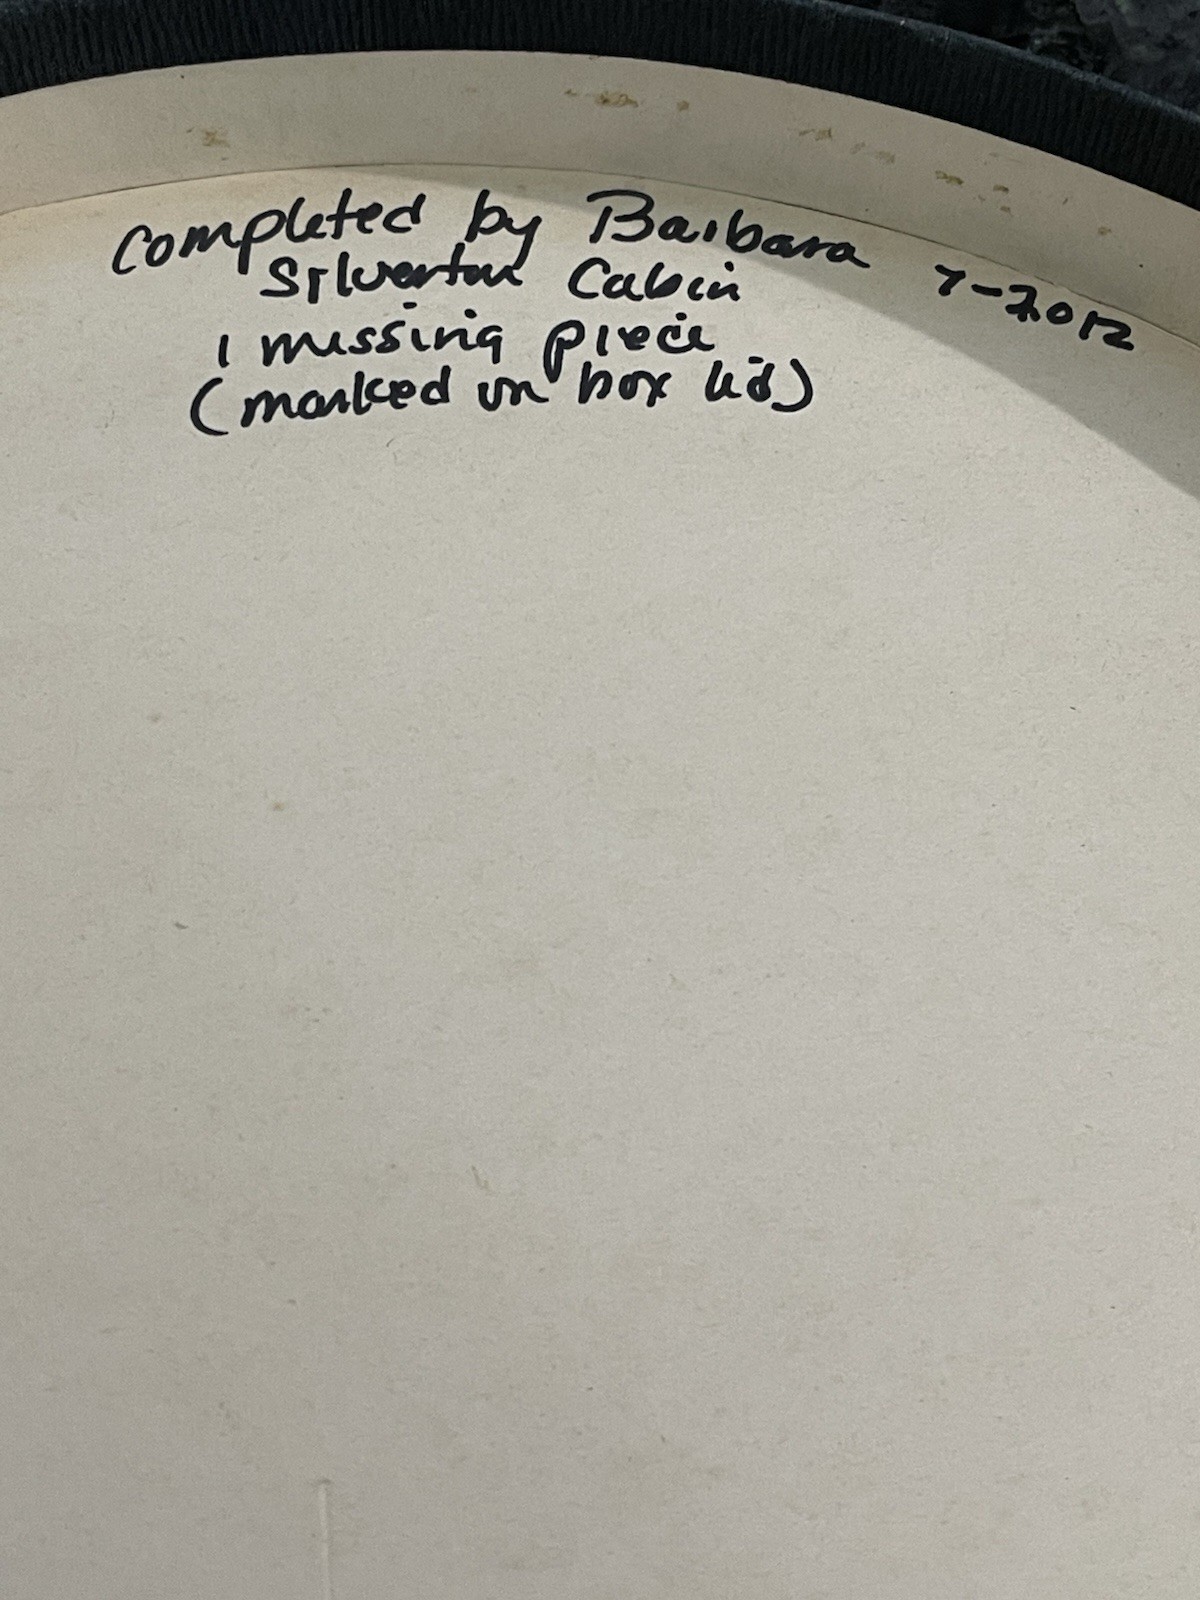 Completed by Barbara 7-2012
Silverton Cabin
1 missing piece
(marked on box lid)